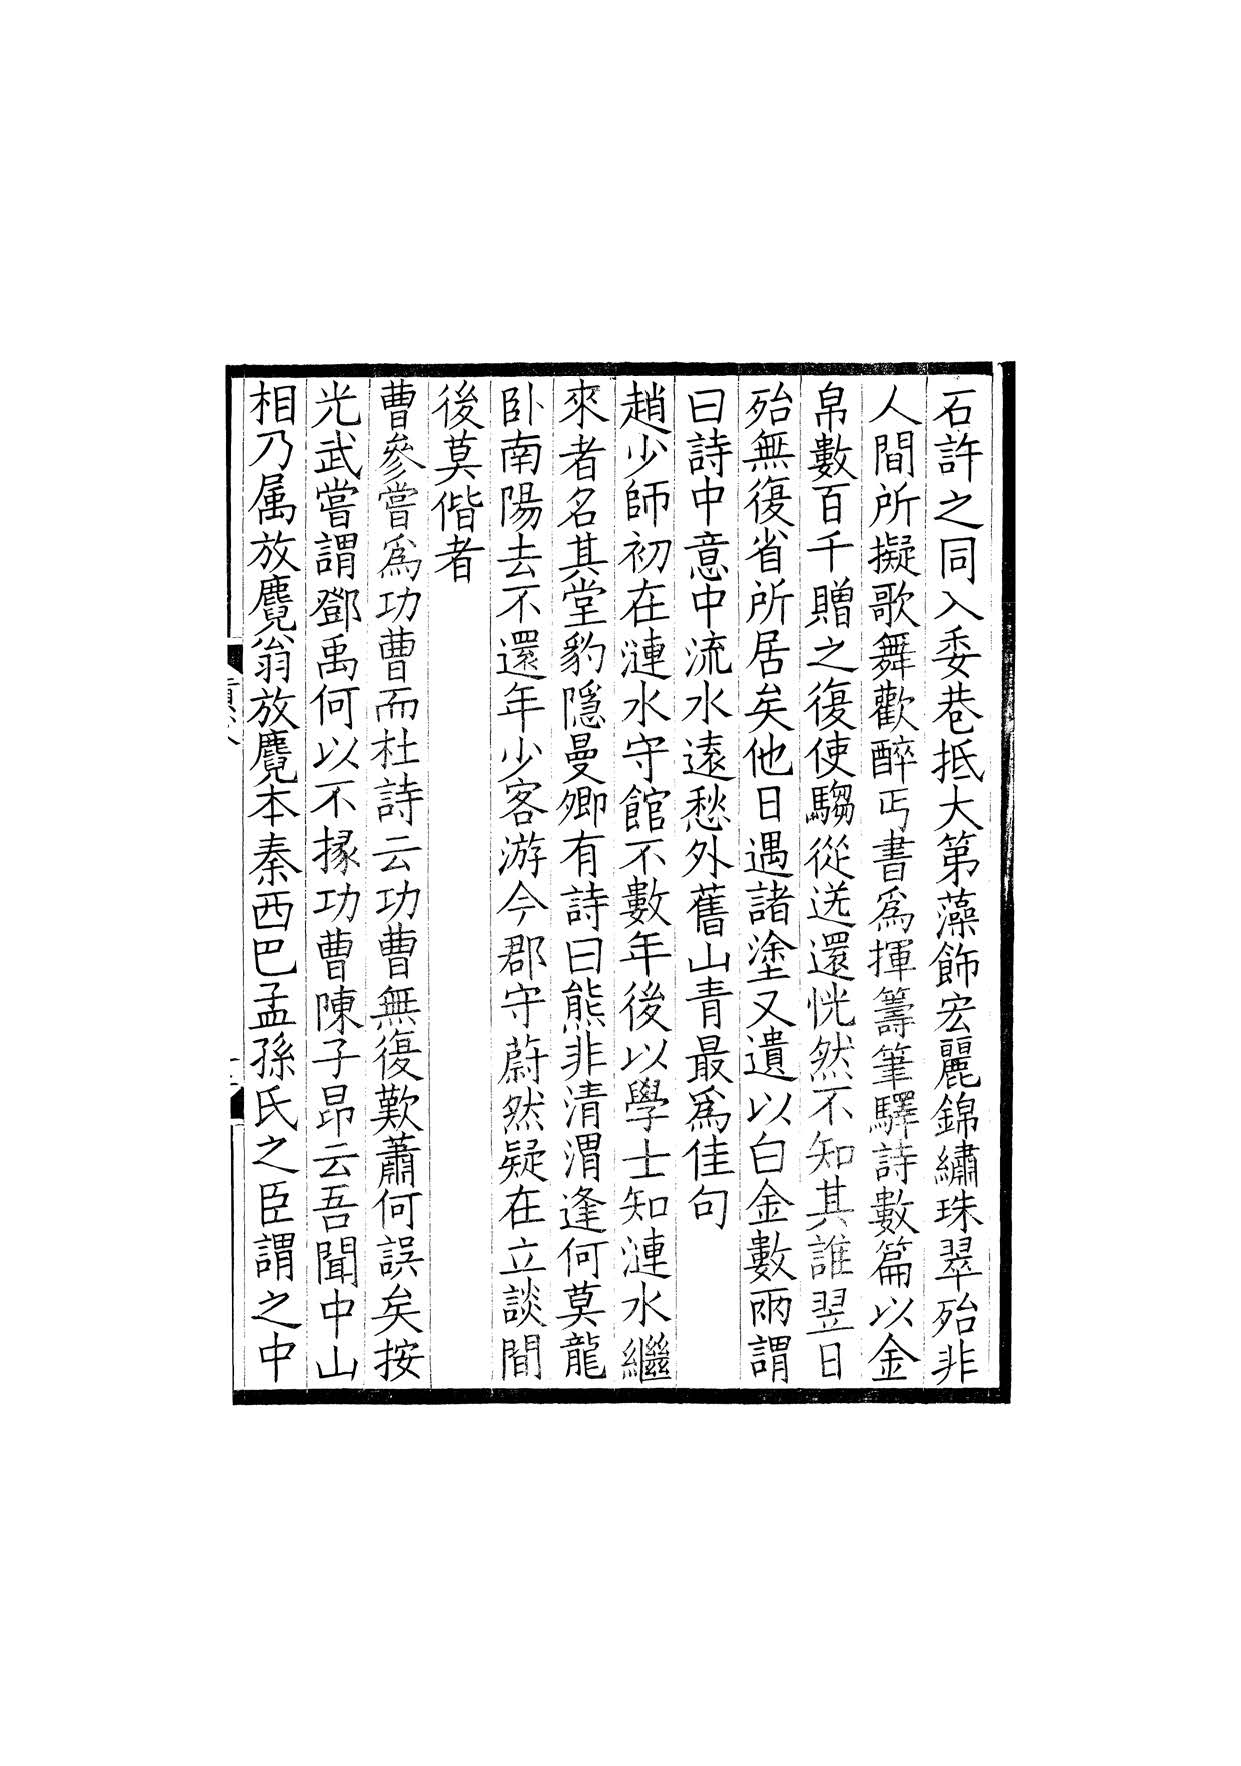 石許之同入委巷抵大第藻飾宏麗錦繡珠翠殆非
人間所擬歌舞歡醉丐書爲揮籌筆驛詩數篇以金
帛數百千贈之復使騶從送還恍然不知其誰翌日
殆無復省所居矣他日遇諸塗又遺以白金數兩謂
曰詩中意中流水遠愁外舊山青最爲佳句
趙少師初在漣水守館不數年後以學士知漣水繼
來者名其堂豹隱曼卿有詩曰熊非清渭逢何莫龍
卧南陽去不還年少客游今郡守蔚然疑在立談間
後莫偕者
曹參嘗爲功曹而杜詩云功曹無復歎蕭何誤矣按
光武嘗謂鄧禹何以不掾功曹陳子昂云吾聞中山
相乃属放麑翁放麑本秦西巴孟孫氏之臣謂之中